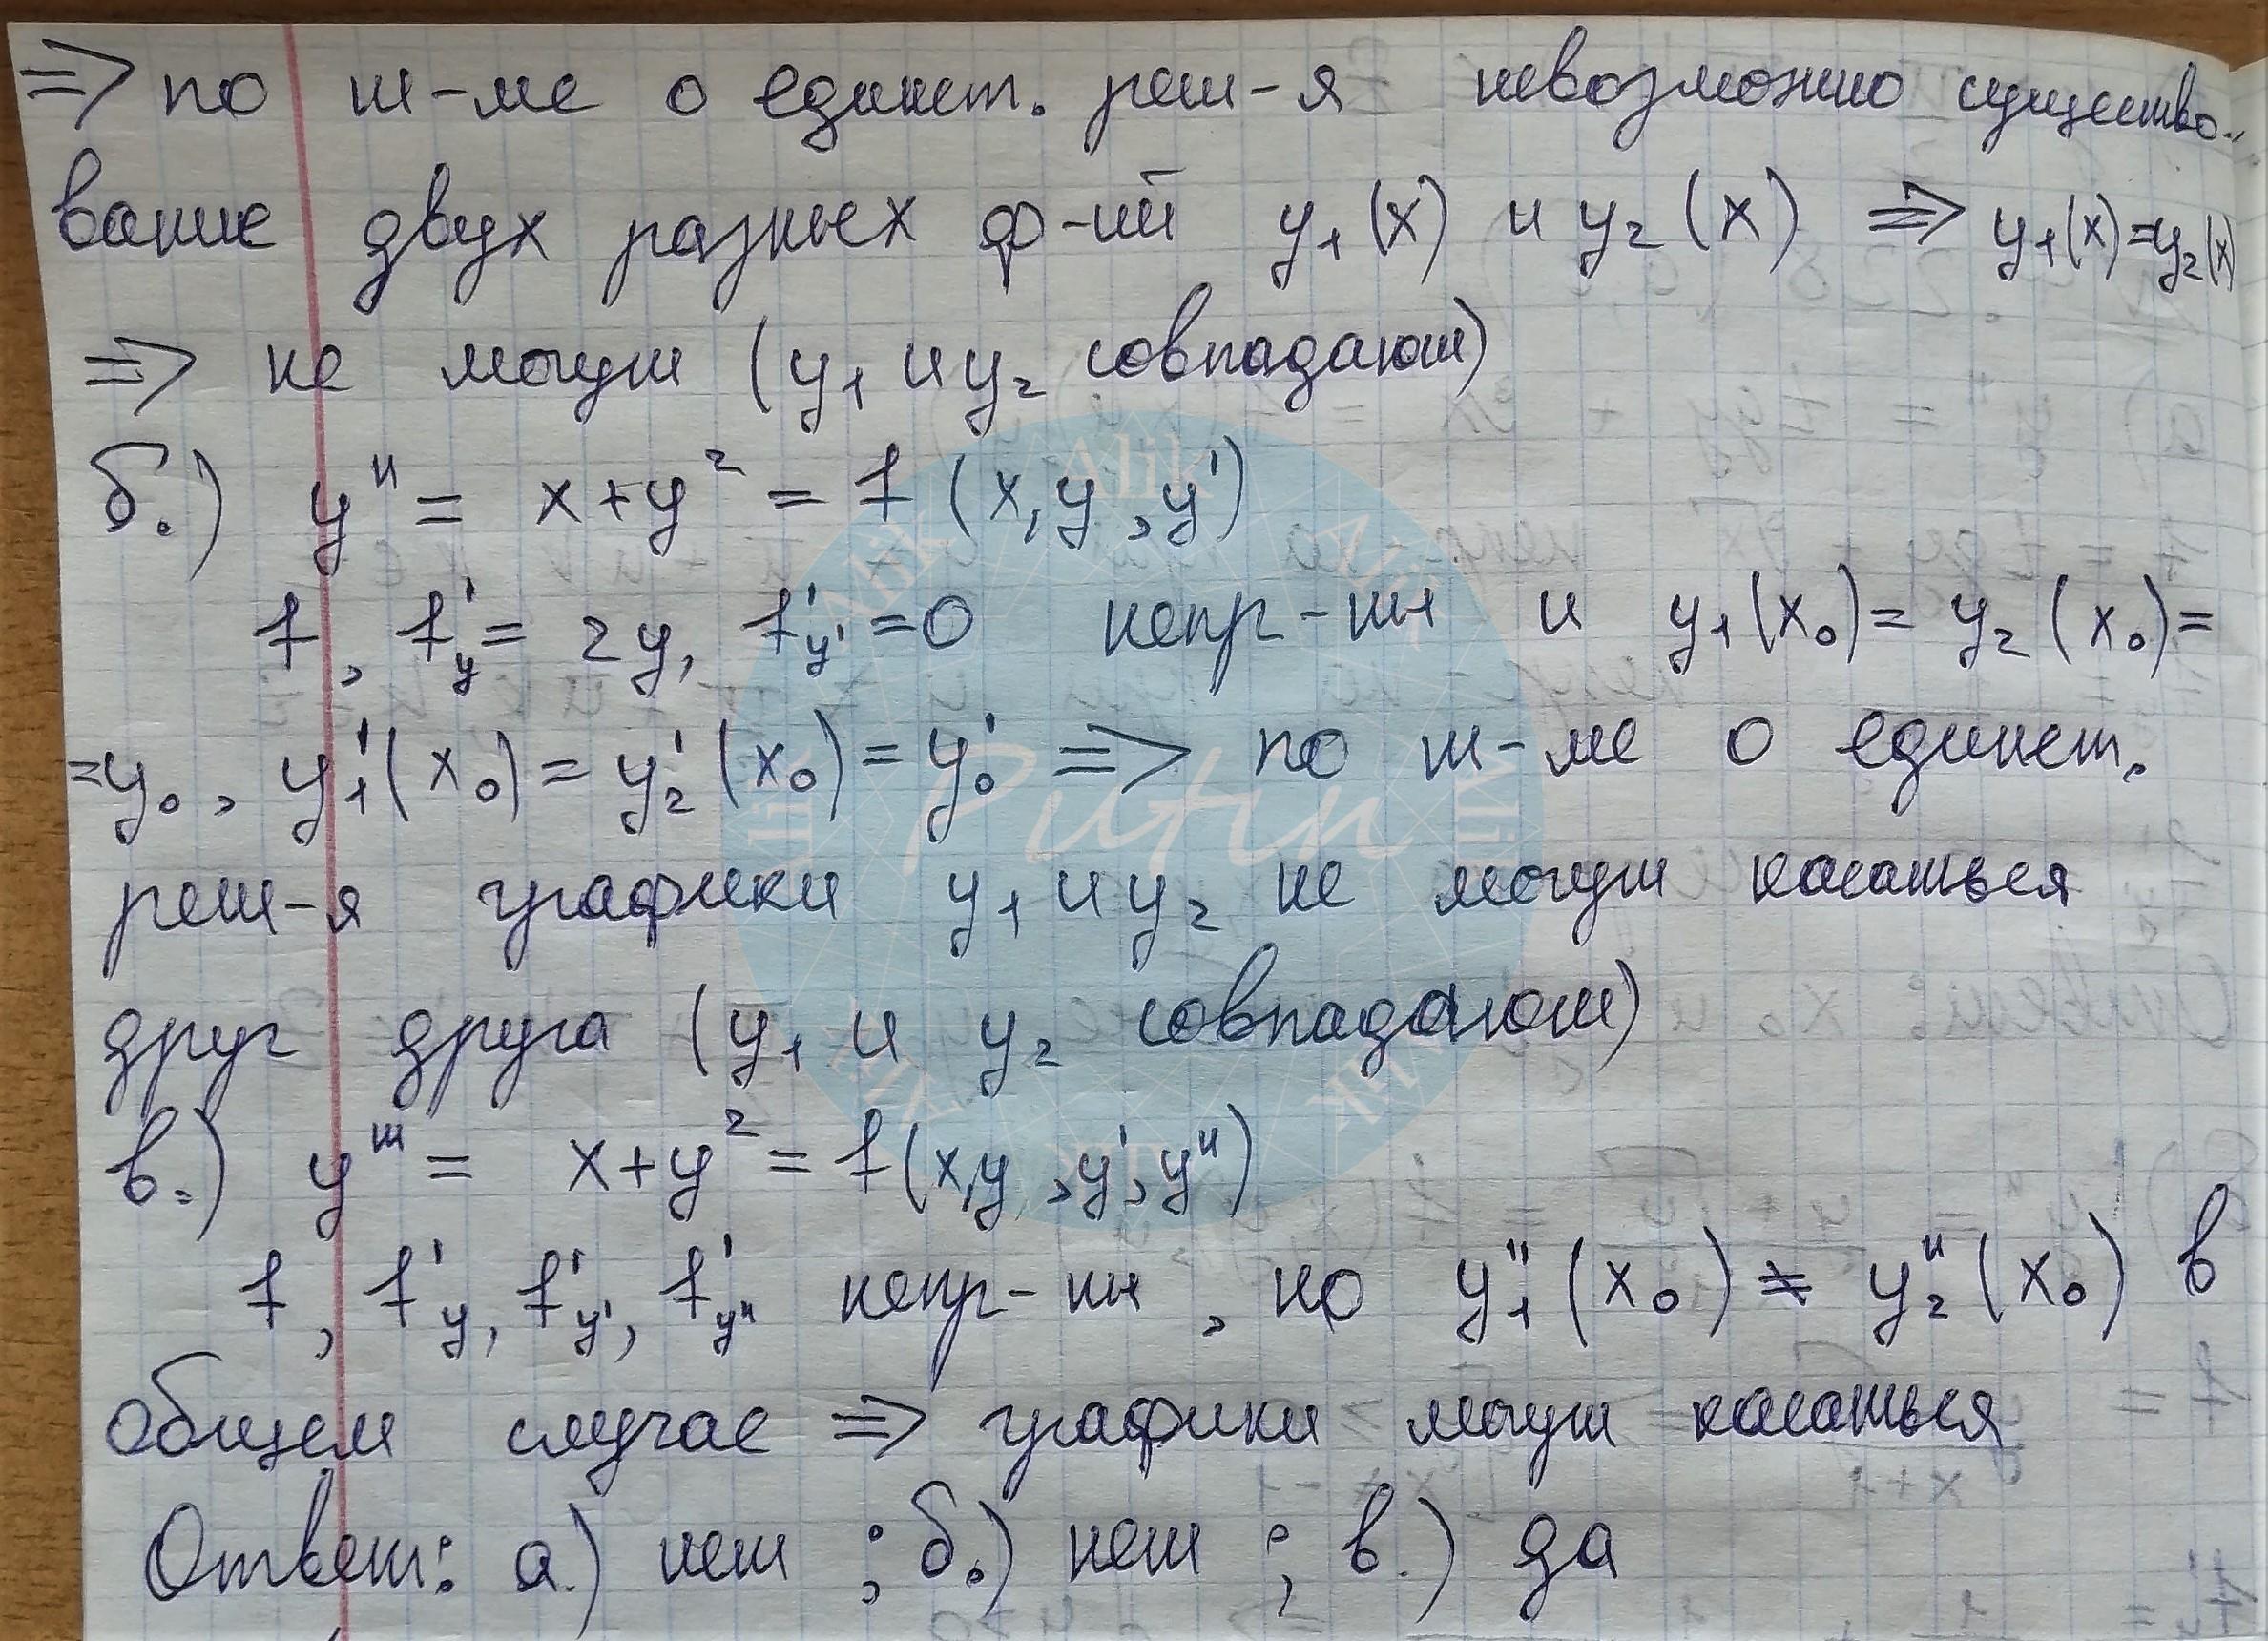 => по т-ме о единст. реш-я невозможно существо-
вание двух разных ф-ий y₁(x) и y₂(x) => y₁(x)=y₂(x)
=> не могут (y₁ и y₂ совпадают)
б.) y'' = x+y² = f(x,y,y')
f, f'y = 2y, f'y' = 0 непр-ны и y₁(x₀) = y₂(x₀) =
=y₀, y₁'(x₀) = y₂'(x₀) = y₀' => по т-ме о единст.
реш-я графики y₁ и y₂ не могут касаться
друг друга (y₁ и y₂ совпадают)
в.) y''' = x+y² = f(x,y,y',y'')
f, f'y, f'y', f'y'' непр-ны, но y₁''(x₀) ≠ y₂''(x₀) в
общем случае => графики могут касаться
Ответ: а.) нет ; б.) нет ; в.) да
Putin
Alik
Alik
Alik
Alik
Alik
Alik
Alik
Alik